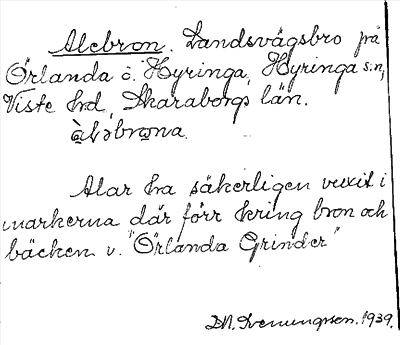 Alebron. Landsvägsbro på
Örlanda ö. Hyringa, Hyringa s:n,
Viste hrd, Skaraborgs län.
àləbrona
Alar ha säkerligen vuxit i
markerna där förr kring bron och
bäcken v. "Örlanda Grinder"
1939.